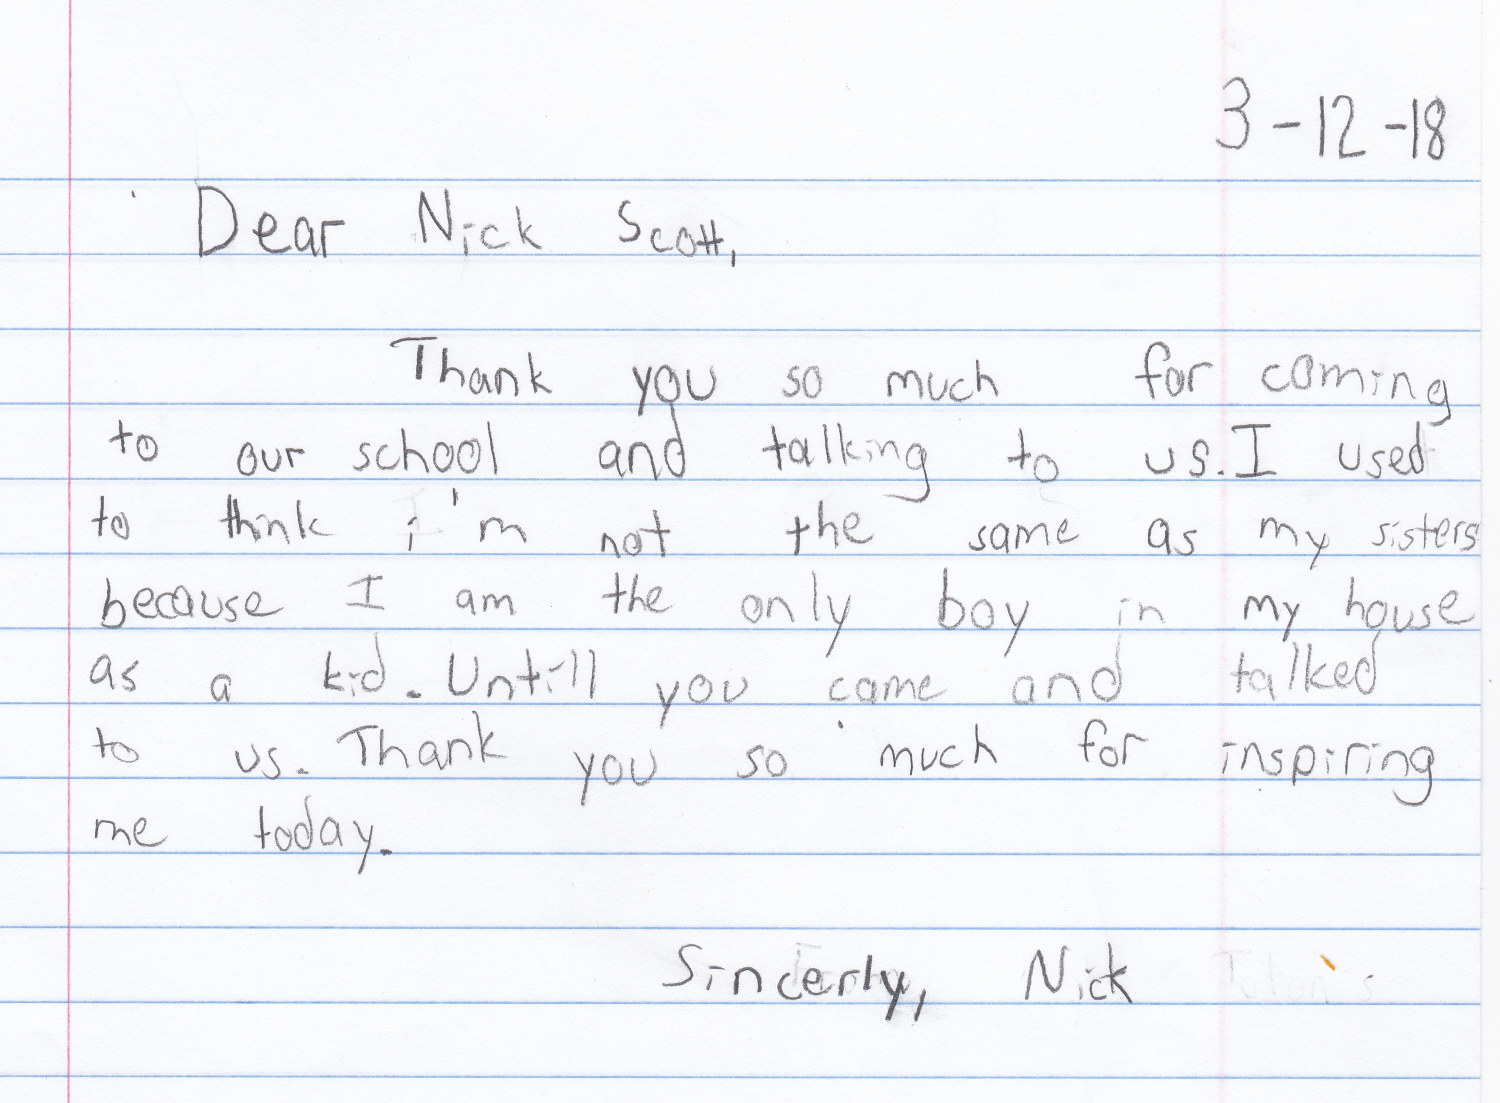 3-12-18
Dear Nick Scott,
Thank you so much for coming
to our school and talking to us. I used
to think i'm not the same as my sisters
because I am the only boy in my house
as a kid. Untill you came and talked
to us. Thank you so much for inspiring
me today.
Sincerly, Nick